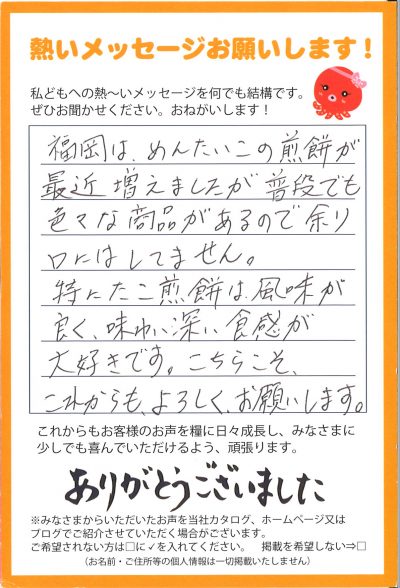 熱いメッセージお願いします！
私どもへの熱〜いメッセージを何でも結構です。
ぜひお聞かせください。おねがいします！
福岡は、めんたいこの煎餅が
最近増えましたが普段でも
色々な商品があるので余り
口にはしてません。
特にたこ煎餅は風味が
良く、味わい深い食感が
大好きです。こちらこそ、
これからも、よろしく、お願いします。
これからもお客様のお声を糧に日々成長し、みなさまに
少しでも喜んでいただけるよう、頑張ります。
ありがとうございました
※みなさまからいただいたお声を当社カタログ、ホームページ又は
ブログでご紹介させていただく場合がございます。
ご希望されない方は□に✓を入れてください。 掲載を希望しない⇒□
（お名前・ご住所等の個人情報は一切掲載いたしません）